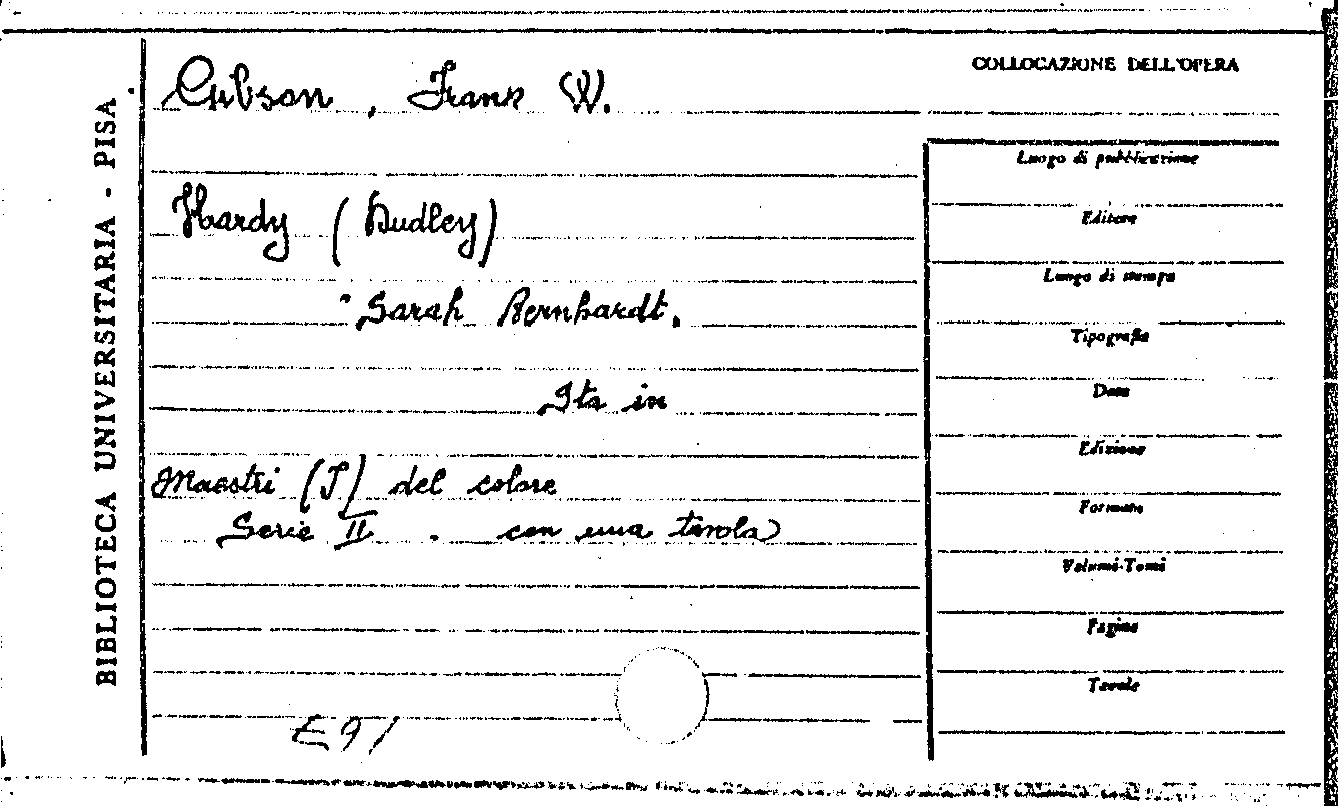 BIBLIOTECA UNIVERSITARIA - PISA
Gibson, Frank W.
Hardy (Dudley)
"Sarah Bernhardt.
Sta in
Maestri (I) del colore
Serie II. con una tavola
E 91
COLLOCAZIONE DELL'OPERA
Luogo di pubblicazione
Editore
Luogo di stampa
Tipografia
Data
Edizione
Formato
Volumi-Tomi
Pagine
Tavole